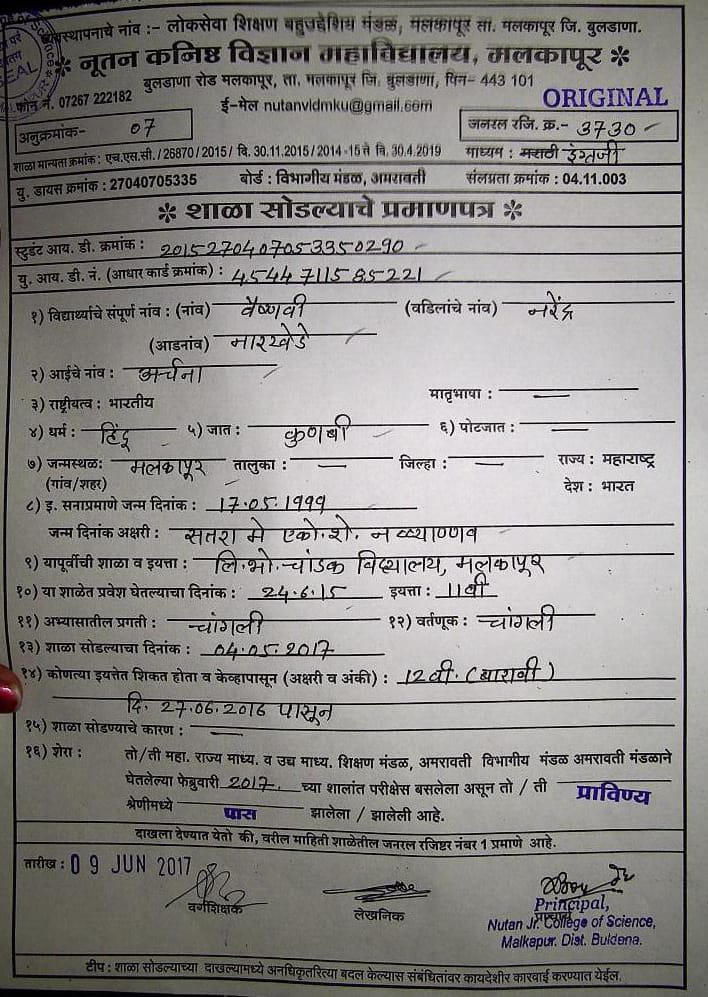 व्यवस्थापनाचे नांव :- लोकसेवा शिक्षण बहुउद्देशिय मंडळ, मलकापूर ता. मलकापूर जि. बुलडाणा.
* नूतन कनिष्ठ विज्ञान महाविद्यालय, मलकापूर *
बुलडाणा रोड मलकापूर, ता. मलकापूर जि. बुलडाणा, पिन- 443 101
फोन नं. 07267 222182 ई-मेल nutanvidmku@gmail.com ORIGINAL
अनुक्रमांक- 07 जनरल रजि. क्र.- 3730
शाळा मान्यता क्रमांक : एच.एस.सी. /26870/2015/ दि. 30.11.2015/2014-15 ते दि. 30.4.2019 माध्यम : मराठी इंग्रजी
यु. डायस क्रमांक : 27040705335 बोर्ड : विभागीय मंडळ, अमरावती संलग्नता क्रमांक : 04.11.003
* शाळा सोडल्याचे प्रमाणपत्र *
स्टुडंट आय. डी. क्रमांक : 2015270407053350290
यु. आय. डी. नं. (आधार कार्ड क्रमांक) : 4544711585221
१) विद्यार्थ्याचे संपूर्ण नांव : (नांव) वैष्णवी (वडिलांचे नांव) नरेंद्र
(आडनांव) नारखेडे
२) आईचे नांव : अर्चना
३) राष्ट्रीयत्व : भारतीय मातृभाषा : —
४) धर्म : हिंदू ५) जात : कुणबी ६) पोटजात : —
७) जन्मस्थळ: मलकापूर तालुका : — जिल्हा : — राज्य : महाराष्ट्र
(गांव/शहर) देश : भारत
८) इ. सनाप्रमाणे जन्म दिनांक : 17.05.1999
जन्म दिनांक अक्षरी : सतरा मे एको.शे. नव्याण्णव
९) यापूर्वीची शाळा व इयत्ता : लि.भो. चांडक विद्यालय, मलकापूर
१०) या शाळेत प्रवेश घेतल्याचा दिनांक : 24.6.15 इयत्ता : 11वी
११) अभ्यासातील प्रगती : चांगली १२) वर्तणूक : चांगली
१३) शाळा सोडल्याचा दिनांक : 04.05.2017
१४) कोणत्या इयत्तेत शिकत होता व केव्हापासून (अक्षरी व अंकी) : 12वी. (बारावी)
दि. 27.06.2016 पासून
१५) शाळा सोडण्याचे कारण : —
१६) शेरा : तो/ती महा. राज्य माध्य. व उच्च माध्य. शिक्षण मंडळ, अमरावती विभागीय मंडळ अमरावती मंडळाने
घेतलेल्या फेब्रुवारी 2017. च्या शालांत परीक्षेस बसलेला असून तो / ती प्राविण्य
श्रेणीमध्ये पास झालेला / झालेली आहे.
दाखला देण्यात येतो की, वरील माहिती शाळेतील जनरल रजिष्टर नंबर 1 प्रमाणे आहे.
तारीख : 09 JUN 2017
वर्गशिक्षक लेखनिक प्राचार्य
Principal,
Nutan Jr. College of Science,
Malkapur. Dist. Buldana.
टीप : शाळा सोडल्याच्या दाखल्यामध्ये अनधिकृतरित्या बदल केल्यास संबंधितांवर कायदेशीर कारवाई करण्यात येईल.